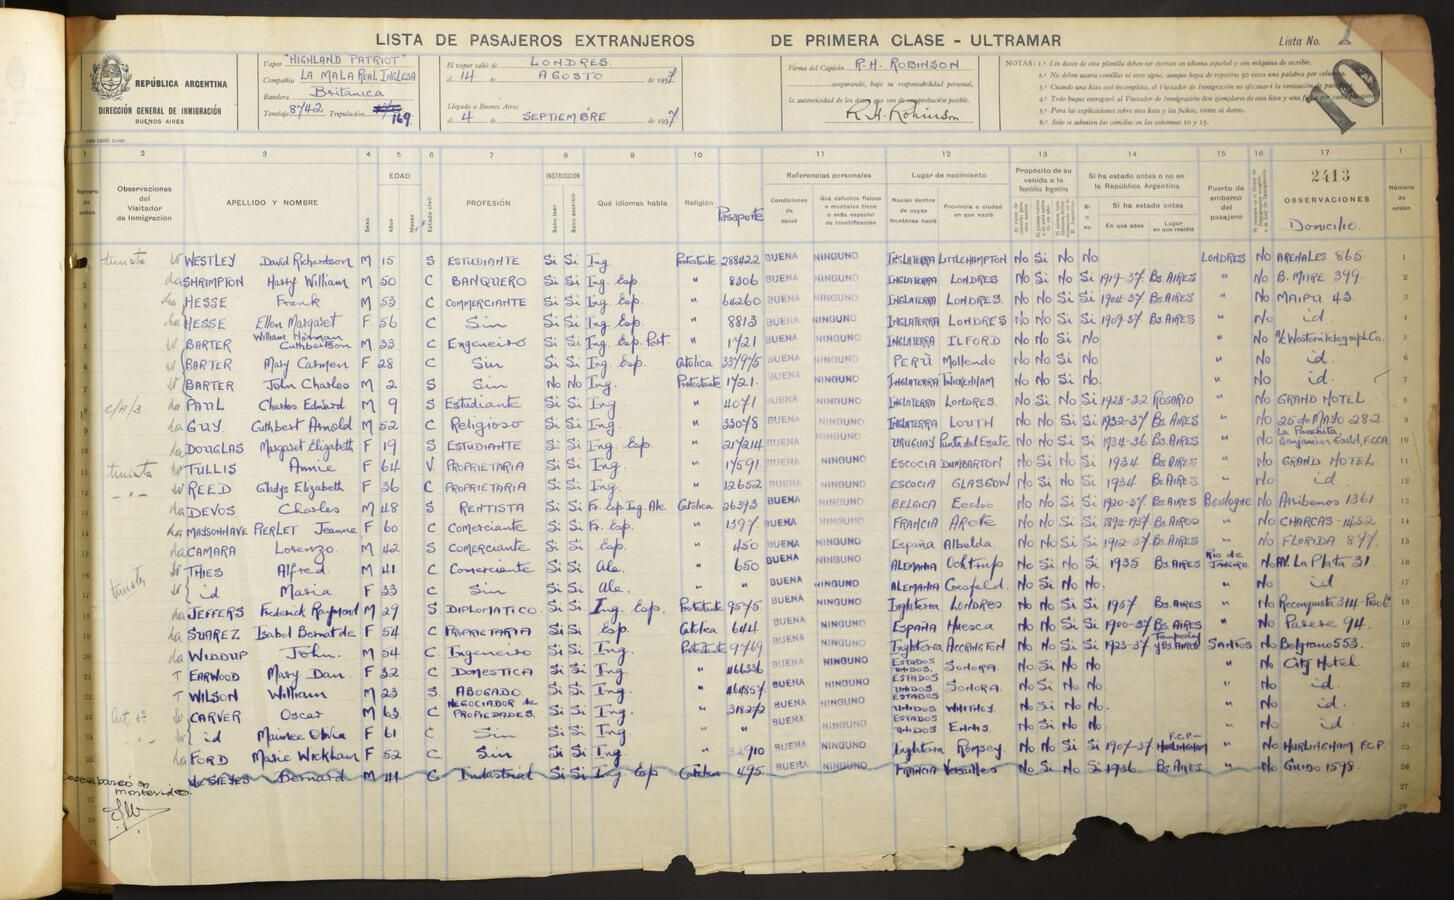 LISTA DE PASAJEROS EXTRANJEROS DE PRIMERA CLASE - ULTRAMAR Lista No. 1
REPÚBLICA ARGENTINA
DIRECCIÓN GENERAL DE INMIGRACIÓN
BUENOS AIRES
Vapor "HIGHLAND PATRIOT"
Compañía LA MALA REAL INGLESA
Bandera Británica
Tonelaje 8742 Tripulación 169.
El vapor salió de LONDRES.
el 14 de AGOSTO de 1937
Llegado a Buenos Aires
el 4 de SEPTIEMBRE de 1937.
Firma del Capitán R.H. ROBINSON
asegurando, bajo su responsabilidad personal,
la autenticidad de los datos que son de comprobación posible.
R.H. Robinson
NOTAS: 1.° Los datos de esta planilla deben ser escritos en idioma español y con máquina de escribir.
2.° No deben usarse comillas ni otro signo, aunque haya de repetirse 30 veces una palabra por columna.
3.° Cuando una lista esté incompleta, el Visitador de Inmigración no efectuará la revisación de pasajeros.
4.° Todo buque entregará al Visitador de Inmigración dos ejemplares de esta lista y una ficha por cada pasajero.
5.° Para las explicaciones sobre esta lista y las fichas, véase al dorso.
6.° Solo se admiten las comillas en las columnas 10 y 15.
10
1 2 3 4 5 6 7 8 9 10 11 12 13 14 15 16 17 1
Número de orden
Observaciones del Visitador de Inmigración
APELLIDO Y NOMBRE
Sexo
EDAD
Años
Meses
Estado civil
PROFESIÓN
INSTRUCCION
Sabe leer
Sabe escribir
Qué idiomas habla
Religión
Pasaporte
Referencias personales
Condiciones de salud
Qué defectos físicos o mentales tiene o seña especial de identificación
Lugar de nacimiento
Nación dentro de cuyas fronteras nació
Provincia o ciudad en que nació
Propósito de su venida a la República Argentina
Si ha estado antes o no en la República Argentina
Si o no
Si ha estado antes
En qué años
Lugar en que residió
Puerto de embarco del pasajero
2413
OBSERVACIONES
Domicilio.
Número de orden
turista WESTLEY David Richardson M 15 S ESTUDIANTE Si Si Ing. Protestante 288422 BUENA NINGUNO INGLATERRA LITTLEHAMPTON No Si No No LONDRES No ARENALES 865. 1
SHRIMPTON Harry William M 50 C BANQUERO Si Si Ing. Esp. " 8306 BUENA NINGUNO INGLATERRA LONDRES No No Si Si 1919-37 Bs.AIRES " No B. MITRE 399. 2
HESSE Frank M 53 C COMMERCIANTE Si Si Ing. Esp. " 64260 BUENA NINGUNO INGLATERRA LONDRES. No No Si Si 1904-37 Bs AIRES " No MAIPU 43. 3
HESSE Ellen Margaret F 56 C Sin Si Si Ing. Esp. " 8813 BUENA NINGUNO INGLATERRA LONDRES No No Si Si 1909-37 Bs.AIRES " No id. 4
BARTER William Cuthbertson M 33 C Engeneiro Si Si Ing. Esp. Port. " 1421 BUENA NINGUNO INGLATERRA ILFORD No No Si No " No Western Telegraph Co. 5
BARTER Mary Carmen F 28 C Sin Si Si Ing. Esp. Católica BUENA NINGUNO PERÚ Mollendo No No Si No " No id. 6
BARTER John Charles M 2 S Sin No No Ing. Protestante 1421. BUENA NINGUNO INGLATERRA TWICKENHAM No No Si No. " No id. 7
PAUL Charles Edward M 9 S Estudiante Si Si Ing. " 4071 BUENA NINGUNO INGLATERRA LONDRES. No No Si Si 1928-32 ROSARIO " No GRAND HOTEL. 8
GUY Cuthbert Arnold M 52 C Religioso Si Si Ing. " 33078 BUENA NINGUNO INGLATERRA LOUTH No No Si Si 1932-37 Bs AIRES " No 25 de MAYO 282. 9
DOUGLAS Margaret Elizabeth F 19 S ESTUDIANTE Si Si Ing. Esp. " 217214 BUENA NINGUNO URUGUAY Punta del Este No No Si Si 1934-36 Bs AIRES " No Benjamin Gould, F.C.C.A. 10
turista TULLIS Annie F 64 V. PROPRIETARIA Si Si Ing. " 17591 BUENA NINGUNO ESCOCIA DUMBARTON No Si No Si 1934 Bs AIRES " No GRAND HOTEL. 11
REED Gladys Elizabeth F 36 C PROPRIETARIA Si Si Ing. " 12652 BUENA NINGUNO ESCOCIA GLASGOW No Si No Si 1934 Bs AIRES " No id. 12
DEVOS Charles M 48 S RENTISTA Si Si Fr. Esp. Ing. Ale Católica 26393 BUENA NINGUNO BELGICA Eecloo No No Si Si 1920-37. Bs AIRES Boulogne No Arribenos 1361 13
MAYSONHAVE PIERLET Jeanne F 60 C Comerciante Si Si Fr. Esp. " 1397. BUENA NINGUNO FRANCIA No No Si Si 1892-1937. Bs AIRES " No CHARCAS - 1432 14
CAMARA Lorenzo. M 42 S COMERCIANTE Si Si Esp. " 450 BUENA NINGUNO España Albelda. No No Si Si 1912-37 Bs.AIRES " No FLORIDA 877. 15
THIES Alfred. M 41 C Comerciante Si Si Ale. " 650 BUENA NINGUNO ALEMANIA Ochtrup No Si No Si 1935 Bs.AIRES Rio de JANEIRO No AV. La Plata 31. 16
turista id Maria F 33 C Sin Si Si Ale. " " BUENA NINGUNO ALEMANIA Coesfeld. No Si No No. " No id. 17
JEFFERS Frederick Raymond M 29 S DIPLOMATICO. Si Si Ing. Esp. Protestante 9575. BUENA NINGUNO Inglaterra LONDRES. No No Si Si 1937 Bs.AIRES " No Reconquista 314-Piso 6° 18
SUAREZ Isabel Bernat de F 54 C PROPRIETARIA Si Si Esp. Católica 644 BUENA NINGUNO ESPAÑA Huesca No No Si Si 1900-37 Bs.AIRES " No 94. 19
WIDDUP John. M 54 C Ingeneiro Si Si Ing. Protestante 9769 BUENA NINGUNO Inglaterra ACCRINGTON No No Si Si 1923-37. Temperley y Bs.AIRES SANTOS No Belgrano 553. 20
T EARWOOD Mary Dan. F 32 C DOMESTICA Si Si Ing. " 466336 BUENA NINGUNO ESTADOS UNIDOS. SONORA. No Si No No " No City Hotel. 21
T WILSON William M 23 S. ABOGADO. Si Si Ing. " 464857 BUENA NINGUNO ESTADOS UNIDOS SONORA. No Si No No. " No id. 22
CARVER Oscar M 63. C NEGOCIADOR de PROPIEDADES. Si Si Ing. " 318272 BUENA NINGUNO ESTADOS UNIDOS WHITNEY. No Si No No. " No id. 23
id Olivia F 61 C Sin Si Si Ing. " " BUENA NINGUNO ESTADOS UNIDOS Ennis. No Si No No " No id. 24
FORD Marie Wickham F 52 C. Sin Si Si Ing. " 32910 BUENA NINGUNO Inglaterra Romsey. No No Si Si 1907-37 F.C.P.- HURLINGHAM " No HURLINGHAM F.C.P. 25
Desembarcó en montevideo. Bernard M 41 C Industrial Si Si Ing Esp Católica 495. BUENA NINGUNO FRANCIA Versailles No Si No Si 1936 Bs.AIRES " No GUIDO 1578. 26
27
28
29
30